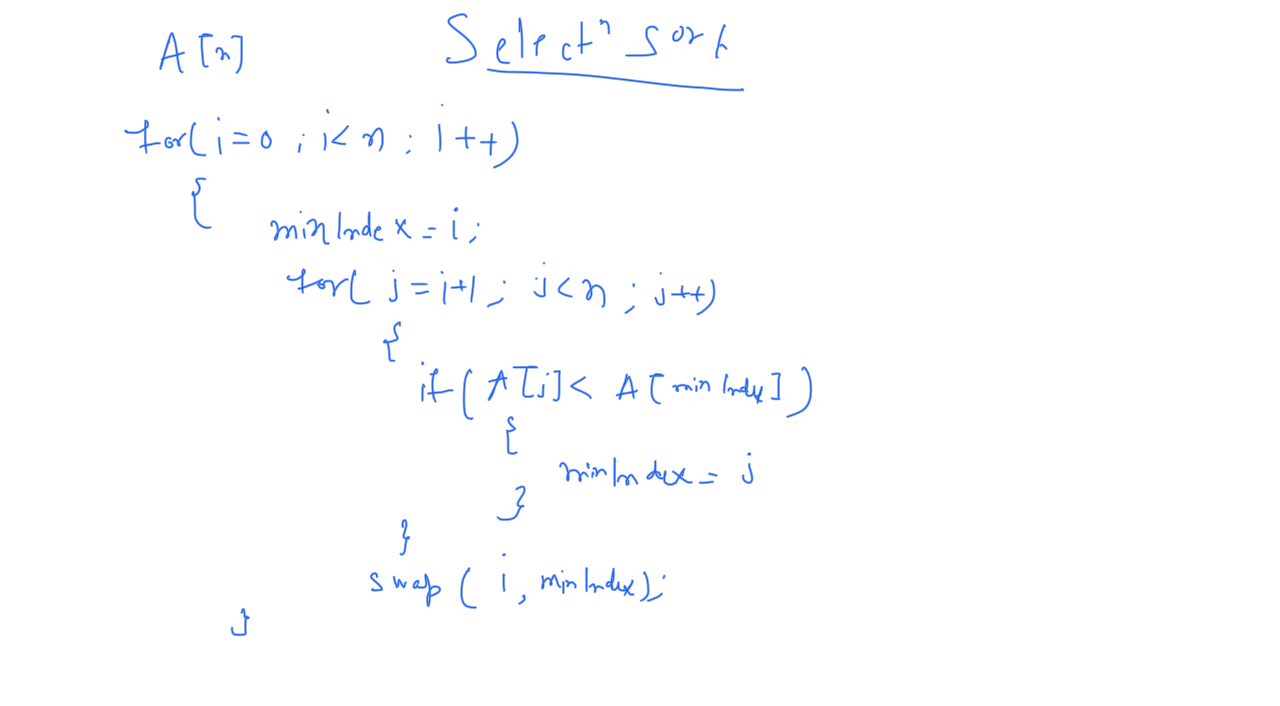 A[n]
Selectⁿ sort
for(i=0 ; i<n ; i++)
{
minIndex = i;
for( j=i+1 ; j<n ; j++)
{
if( A[j]< A[minIndex])
{
minIndex = j
}
}
swap ( i, minIndex);
}